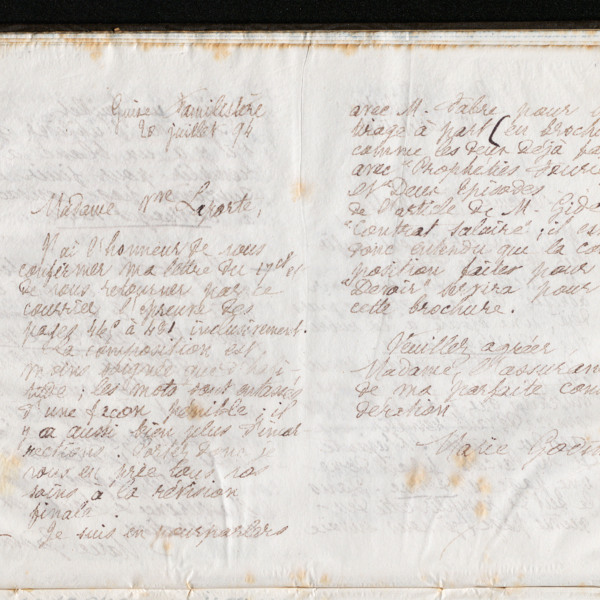 Guise Familistère
20 juillet 94
Madame Vve Laporte,
J'ai l'honneur de vous
confirmer ma lettre du 17 ct et
de vous retourner par ce
courrier l'épreuve des
pages 46 à 481 inclusivement.
La composition est
moins soignée
; les mots sont entassés
d'une façon pénible ; il
y a aussi bien plus d'incor
rections. Portez donc je
vous en prie tous vos
soins à la révision
finale.
Je suis en pourparlers
avec M. Fabre pour
tirage à part (en brochu
comme les deux déjà fa
avec "Prophéties Fourié
et "Deux Épisodes
de l'article de M. Gide
"Contrat salaire" ; il es
donc entendu que la co
position faite pour
"Devoir" servira pour
cette brochure.
Veuillez agréer
Madame, l'assuran
de ma parfaite cons
dération
Marie Godin